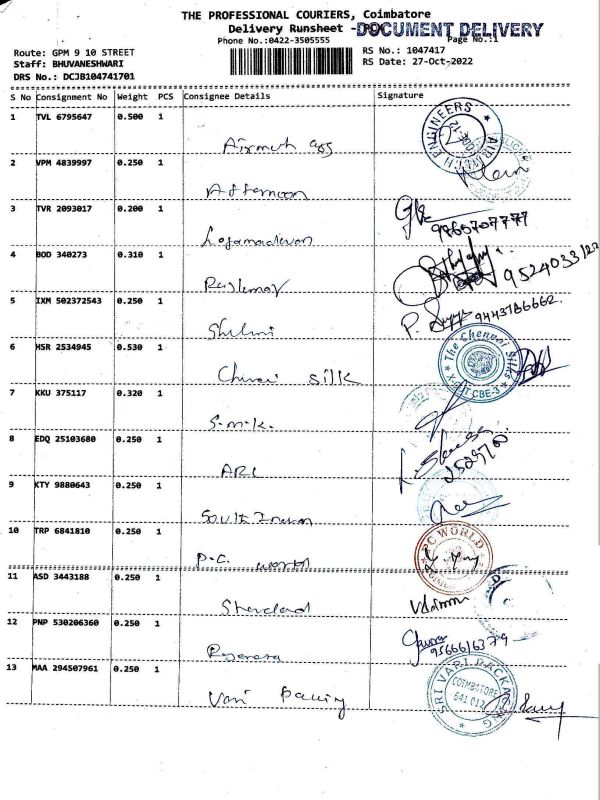 THE PROFESSIONAL COURIERS, Coimbatore
Delivery Runsheet -DOCUMENT DELIVERY
Phone No.:0422-3505555 Page No.:1
Route: GPM 9 10 STREET RS No.: 1047417
Staff: BHUVANESHWARI RS Date: 27-Oct-2022
DRS No.: DCJB104741701
S No Consignment No Weight PCS Consignee Details Signature
1 TVL 6795647 0.500 1
AIRMECH ENGINEERS
2 VPM 4839997 0.250 1
Afternoon
3 TVR 2093017 0.200 1
9865707777
Logamadevan
4 BOD 340273 0.310 1
5 IXM 502372543 0.250 1
9443786662.
6 HSR 2534945 0.530 1
The Chennai Silks
X-CUT CBE-3
Chennai silk
7 KKU 375117 0.320 1
S.m.k.
8 EDQ 25103680 0.250 1
ARC
9 KTY 9880643 0.250 1
South Indian
10 TRP 6841810 0.250 1
PC WORLD
P.C. world
11 ASD 3443188 0.250 1
Standard
12 PNP 530206360 0.250 1
9566616379
13 MAA 294507961 0.250 1
SRI VARI PACKAGING
COIMBATORE
641 012
Vari Packing